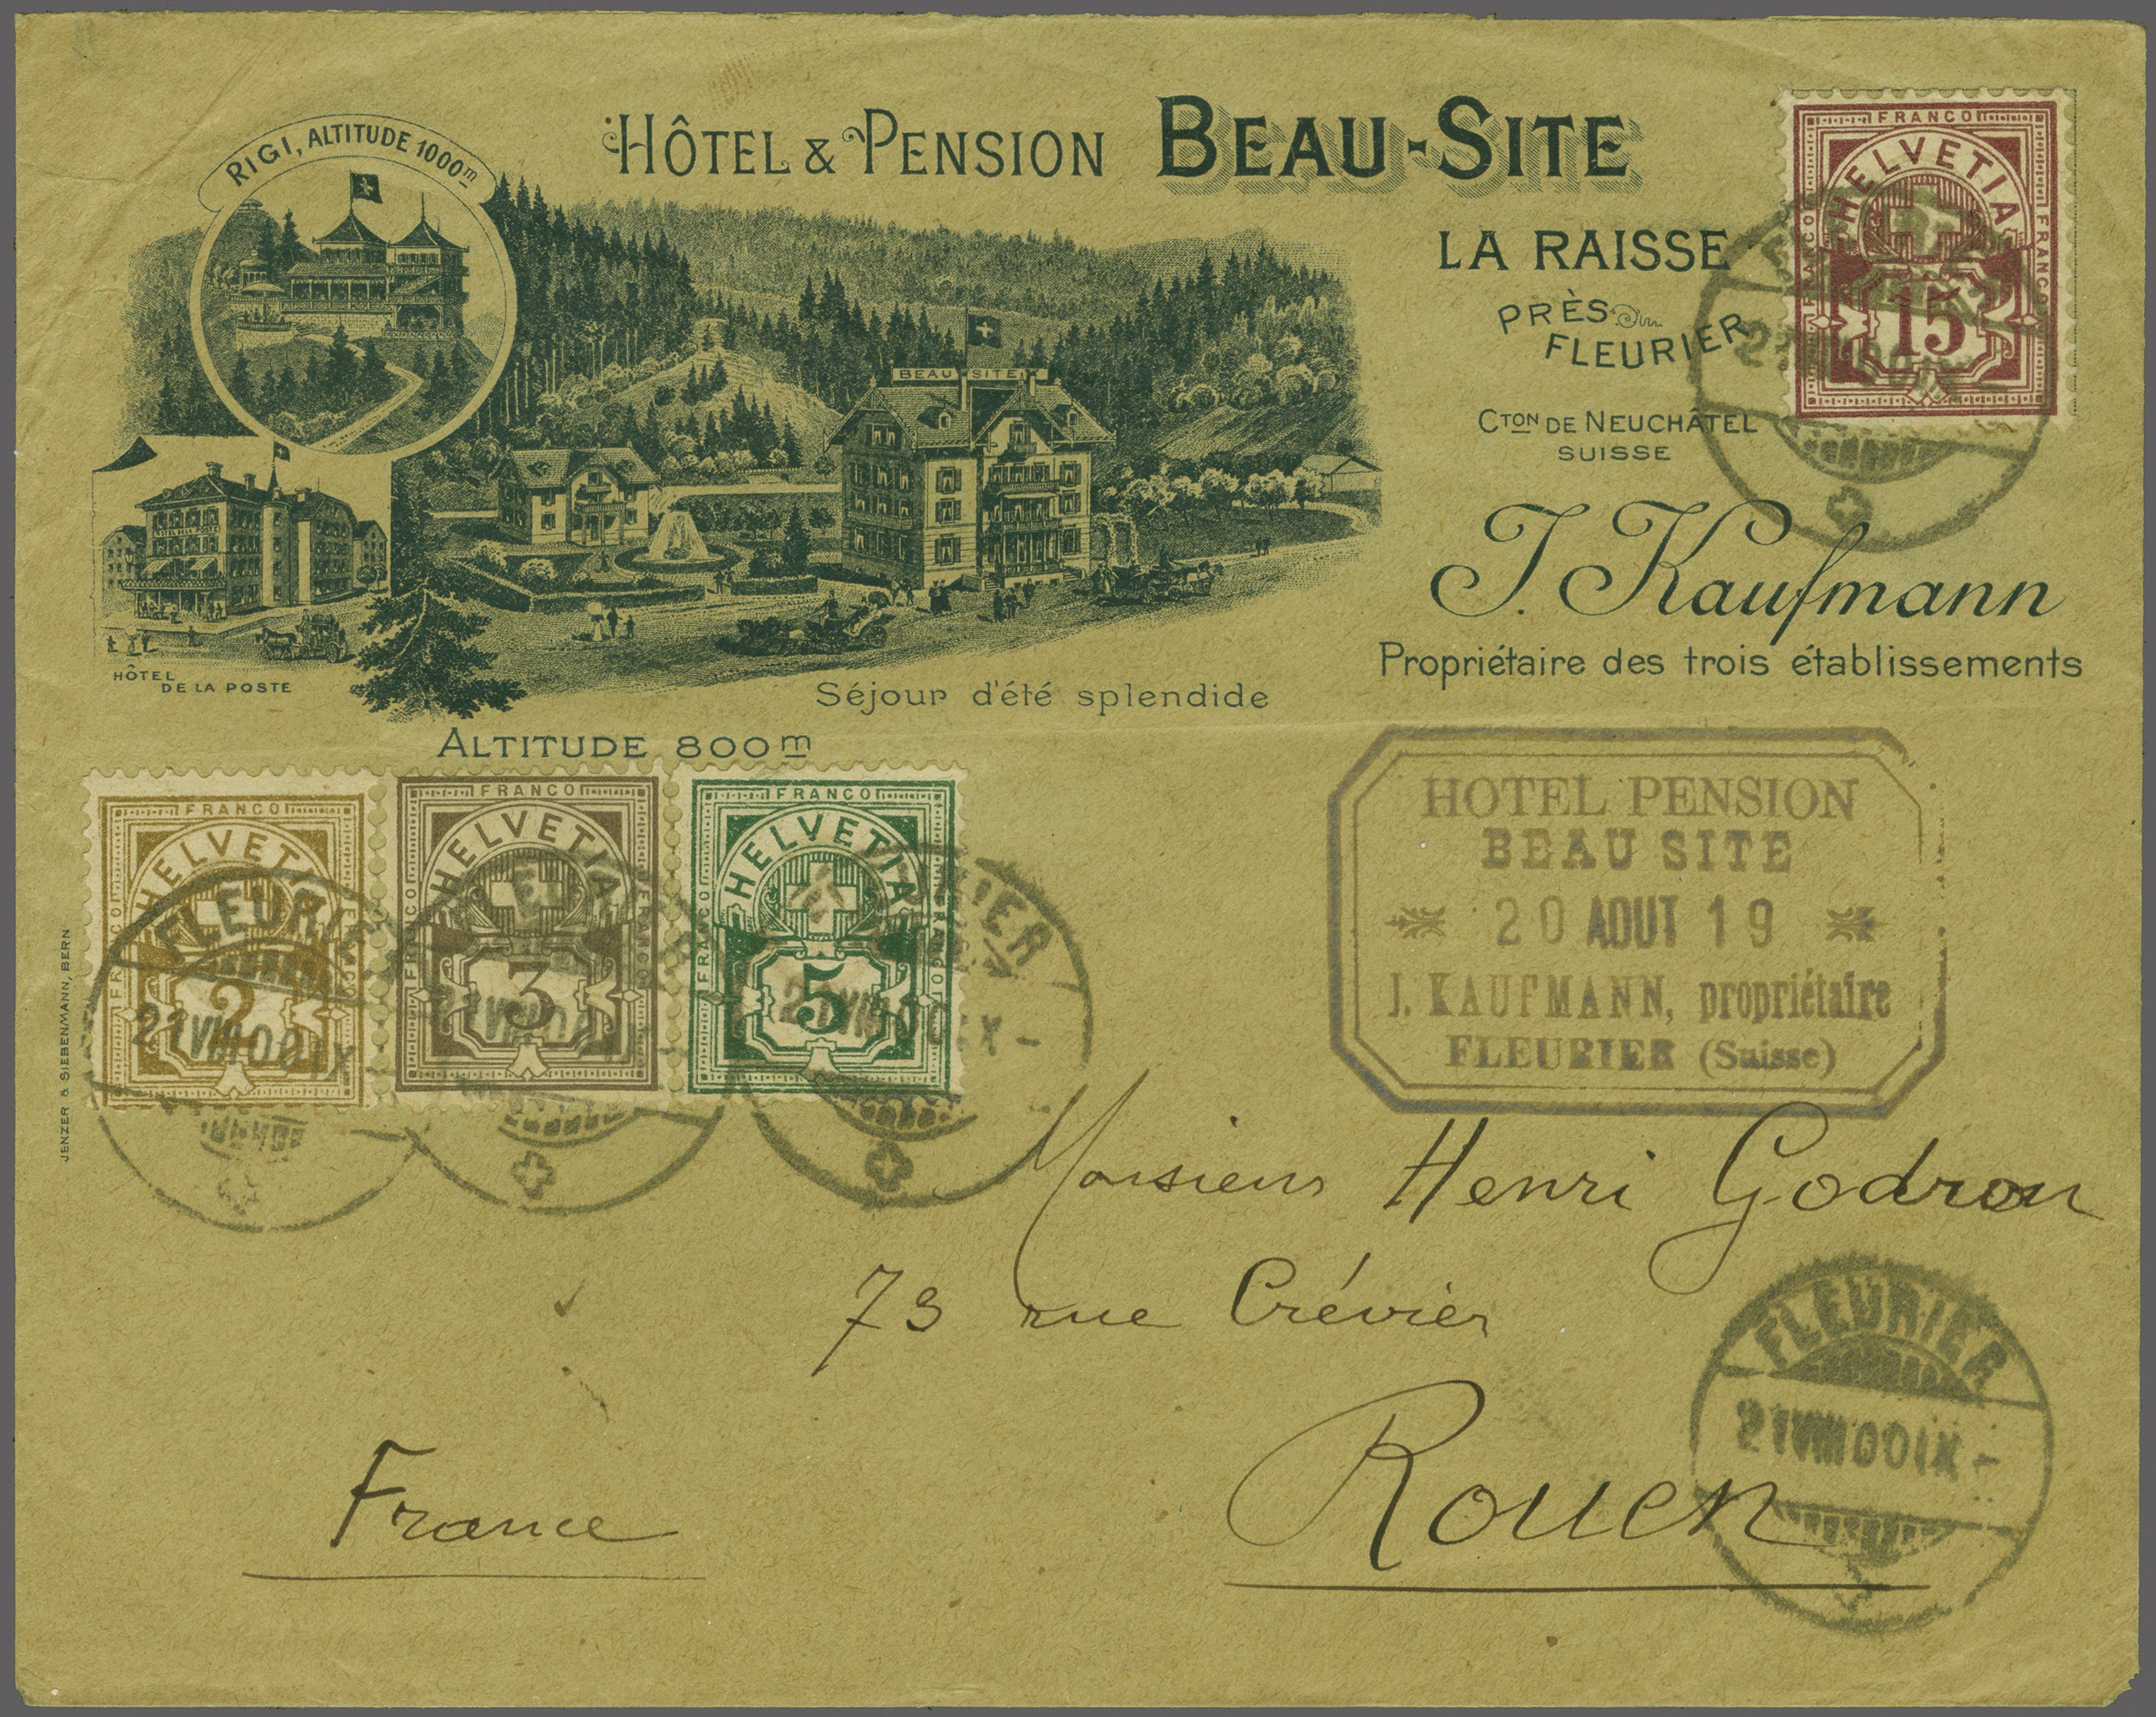 HÔTEL & PENSION BEAU-SITE
RIGI, ALTITUDE 1000m
LA RAISSE
PRÈS
FLEURIER
CTON DE NEUCHÂTEL
SUISSE
BEAU SITE
J. Kaufmann
Propriétaire des trois établissements
HÔTEL
DE LA POSTE
Séjour d'été splendide
ALTITUDE 800m
JENZER & SIEBENMANN, BERN
FRANCO
HELVETIA
FRANCO
FRANCO
15
FRANCO
HELVETIA
FRANCO
FRANCO
2
FLEURI
21 VIII 00 IX
FRANCO
HELVETIA
FRANCO
FRANCO
3
FRANCO
HELVETIA
FRANCO
FRANCO
5
21 VIII 00 IX -
HOTEL PENSION
BEAU SITE
20 AOUT 19
J. KAUFMANN, propriétaire
FLEURIER (Suisse)
Monsieur Henri Godron
73 rue Crévier
Rouen
France
FLEURIER
21 VIII 00 IX -